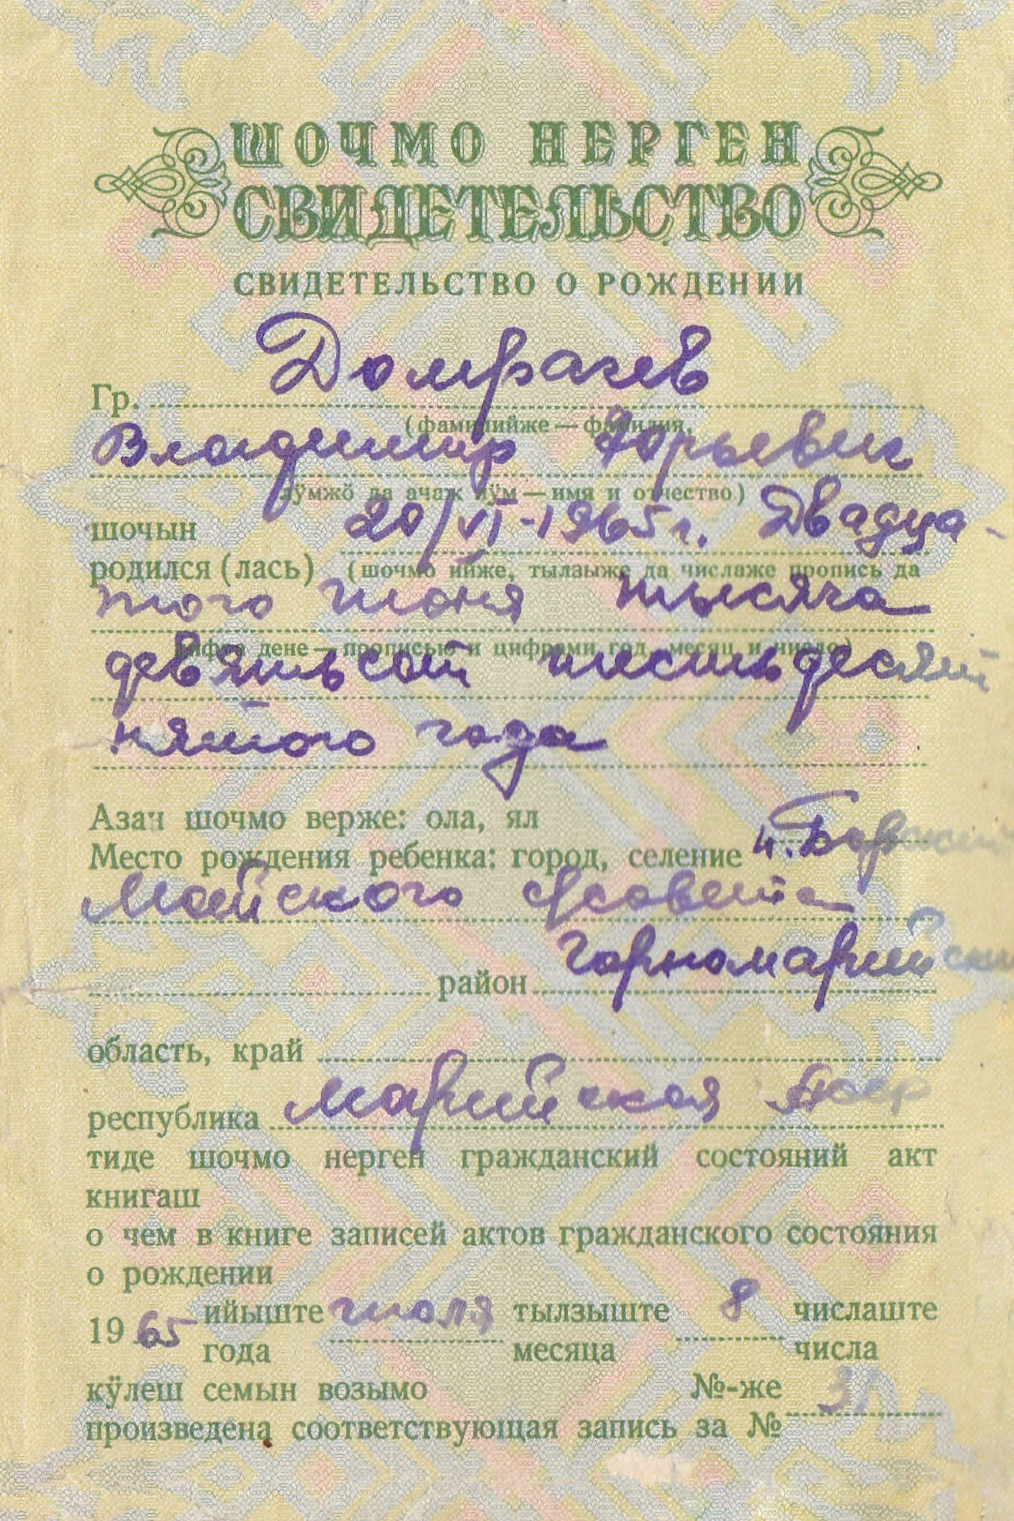 ШОЧМО НЕРГЕН
СВИДЕТЕЛЬСТВО
СВИДЕТЕЛЬСТВО О РОЖДЕНИИ
Гр. Домрачев
(фамилийже — фамилия,
Владимир Юрьевич
лӱмжӧ да ачаж лӱм — имя и отчество)
шочын 20/VI-1965 г. Двадца-
родился (лась) (шочмо ийже, тылзыже да числаже пропись да
того июня тысяча
цифра дене — прописью и цифрами год, месяц и число)
девятьсот шестьдесят
пятого года
Азан шочмо верже: ола, ял
Место рождения ребенка: город, селение
Майского с/совета
район Горномарийский
область, край
республика Марийская АССР
тиде шочмо нерген гражданский состояний акт
книгаш
о чем в книге записей актов гражданского состояния
о рождении
19 65 ийыште июля тылзыште 8 числаште
года месяца числа
кӱлеш семын возымо №-же
произведена соответствующая запись за №